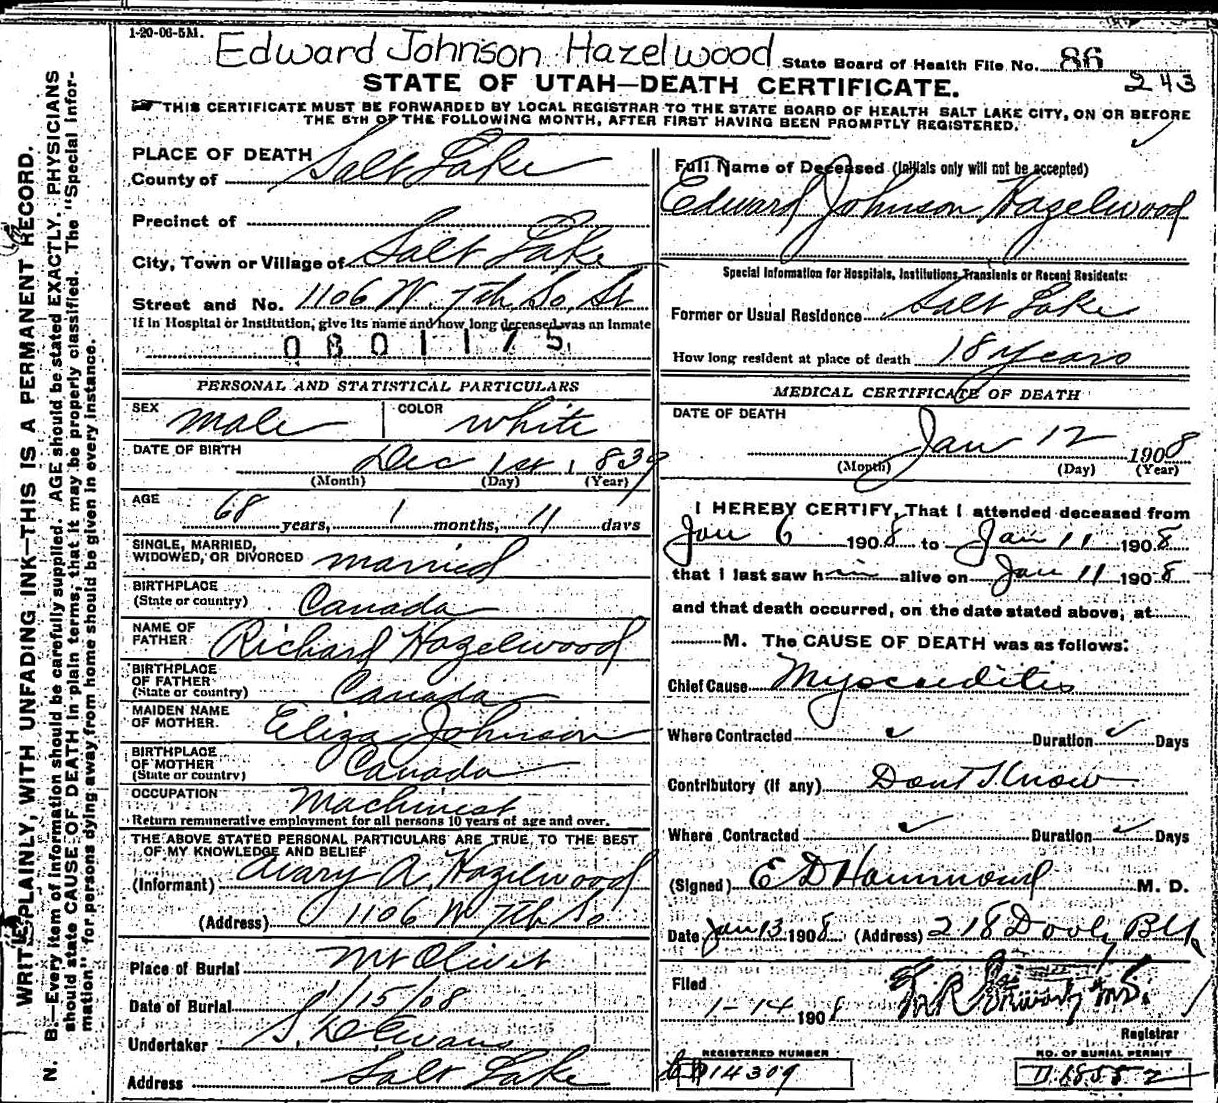 1-20-06-5M.
Edward Johnson Hazelwood
State Board of Health File No. 86
243
STATE OF UTAH—DEATH CERTIFICATE.
THIS CERTIFICATE MUST BE FORWARDED BY LOCAL REGISTRAR TO THE STATE BOARD OF HEALTH SALT LAKE CITY, ON OR BEFORE
THE 5TH OF THE FOLLOWING MONTH, AFTER FIRST HAVING BEEN PROMPTLY REGISTERED.
WRITE PLAINLY, WITH UNFADING INK—THIS IS A PERMANENT RECORD.
N. B.—Every item of information should be carefully supplied. AGE should be stated EXACTLY. PHYSICIANS
should state CAUSE OF DEATH in plain terms, that it may be properly classified. The "Special Infor-
mation" for persons dying away from home should be given in every instance.
PLACE OF DEATH
County of Salt Lake
Precinct of
City, Town or Village of Salt Lake
Street and No. 1106 W. 7th So. St
If in Hospital or Institution, give its name and how long deceased was an Inmate
0801175
PERSONAL AND STATISTICAL PARTICULARS
SEX male COLOR white
DATE OF BIRTH
Dec 1st 1839
(Month) (Day) (Year)
AGE
68 years, 1 months, 11 days
SINGLE, MARRIED,
WIDOWED, OR DIVORCED married
BIRTHPLACE
(State or country) Canada
NAME OF
FATHER Richard Hazelwood
BIRTHPLACE
OF FATHER
(State or country) Canada
MAIDEN NAME
OF MOTHER. Eliza Johnson
BIRTHPLACE
OF MOTHER
(State or country) Canada
OCCUPATION Machinest
Return remunerative employment for all persons 10 years of age and over.
THE ABOVE STATED PERSONAL PARTICULARS ARE TRUE, TO THE BEST
OF MY KNOWLEDGE AND BELIEF
(Informant) Mary A. Hazelwood
(Address) 1106 W 7th So
Place of Burial Mt Olivet
Date of Burial 1/15/08
Undertaker S. D. Evans
Address Salt Lake
Full Name of Deceased (Initials only will not be accepted)
Edward Johnson Hazelwood
Special Information for Hospitals, Institutions, Transients or Recent Residents:
Former or Usual Residence Salt Lake
How long resident at place of death 18 years
MEDICAL CERTIFICATE OF DEATH
DATE OF DEATH
Jan 12 1908
(Month) (Day) (Year)
I HEREBY CERTIFY, That I attended deceased from
Jan 6 1908 to Jan 11 1908
that I last saw him alive on Jan 11 1908
and that death occurred, on the date stated above, at
M. The CAUSE OF DEATH was as follows:
Chief Cause Myocarditis
Where Contracted ✓ Duration ✓ Days
Contributory (if any) Dont Know
Where Contracted ✓ Duration ✓ Days
(Signed) E D Hammond M. D.
Date Jan 13 1908 (Address) 218 Dooly Blk
Filed
1-14 1908
Registrar
REGISTERED NUMBER
14309
NO. OF BURIAL PERMIT